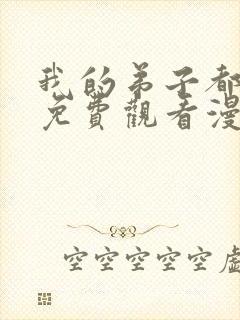 我的弟子都
免費觀看漫
空空空空空虛